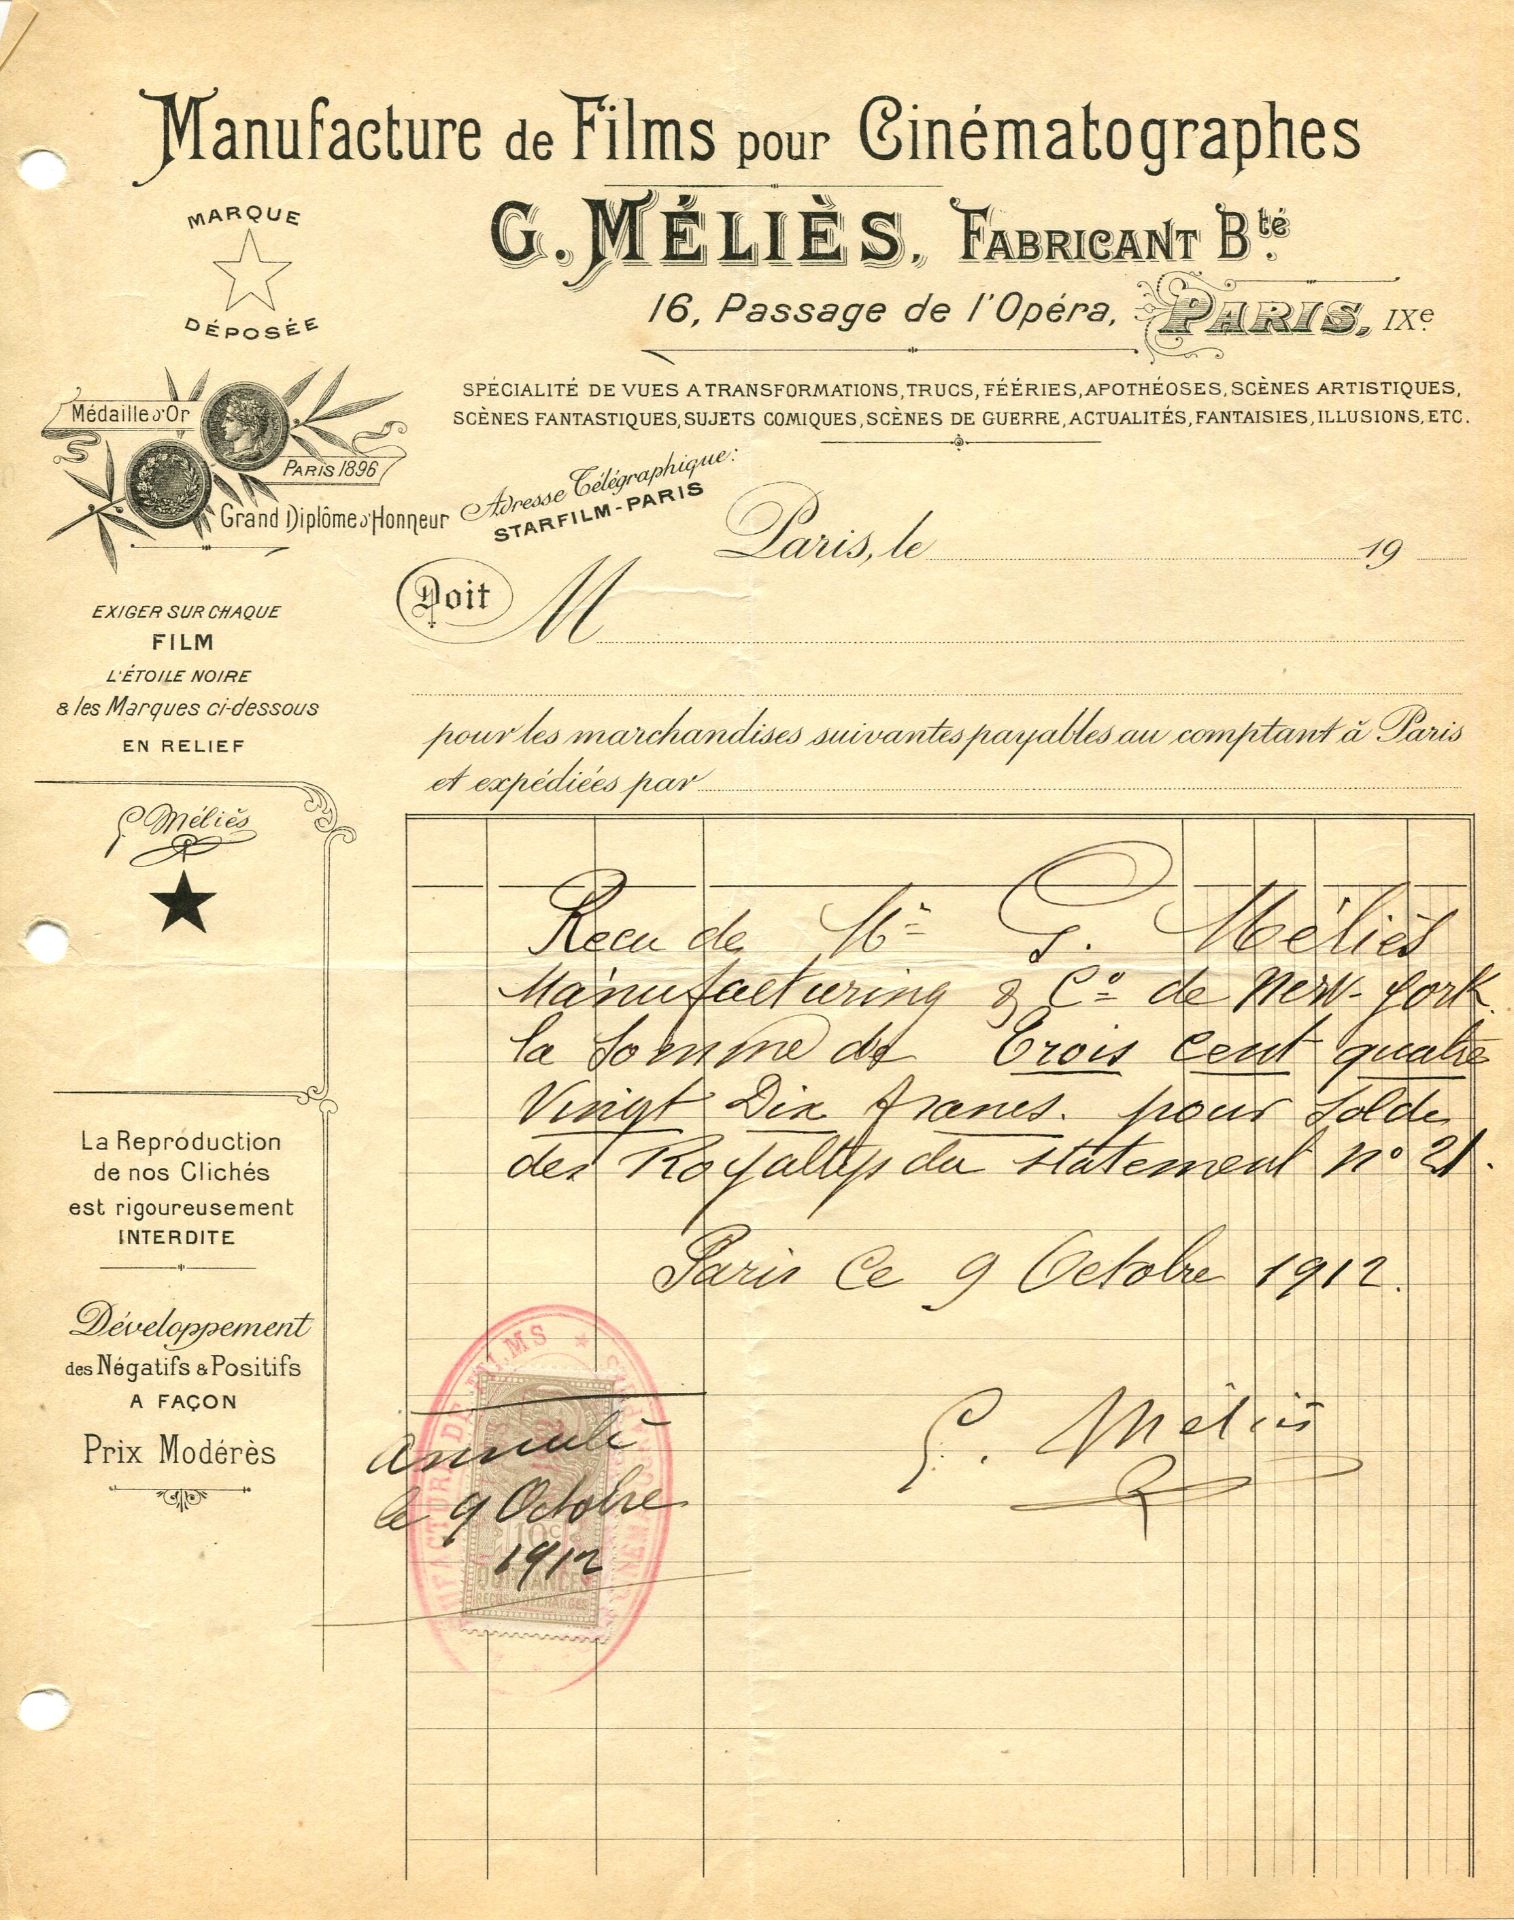 Manufacture de Films pour Cinématographes
G. MÉLIÈS, FABRICANT Bté.
16, Passage de l'Opéra, PARIS, IXe
MARQUE
DÉPOSÉE
SPÉCIALITÉ DE VUES A TRANSFORMATIONS, TRUCS, FÉÉRIES, APOTHÉOSES, SCÈNES ARTISTIQUES,
SCÈNES FANTASTIQUES, SUJETS COMIQUES, SCÈNES DE GUERRE, ACTUALITÉS, FANTAISIES, ILLUSIONS, ETC.
Médaille d'Or
PARIS 1896
Grand Diplôme d'Honneur
Adresse Télégraphique:
STARFILM-PARIS
Paris, le 19
Doit M
pour les marchandises suivantes payables au comptant à Paris
et expédiées par
EXIGER SUR CHAQUE
FILM
L'ÉTOILE NOIRE
& les Marques ci-dessous
EN RELIEF
G. Méliès
La Reproduction
de nos Clichés
est rigoureusement
INTERDITE
Développement
des Négatifs & Positifs
A FAÇON
Prix Modérès
Recu de Mr G. Méliès
Manufacturing & Co de New-York
la somme de Trois cent quatre
Vingt Dix francs. pour solde
des Royaltys du statement no 21.
Paris Ce 9 Octobre 1912.
G. Méliès
MANUFACTURE DE FILMS ★ CINÉMATOGRAPHES
annulé
le 9 Octobre
1912
10c
QUITTANCES
REÇUS ET DÉCHARGES